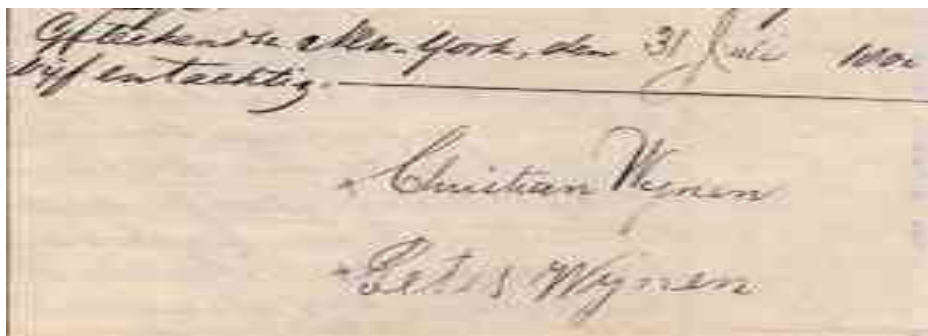 Geteekend te New-York, den 31 Juli
vijf en tachtig.
Christian Wynen
Peter Wynen